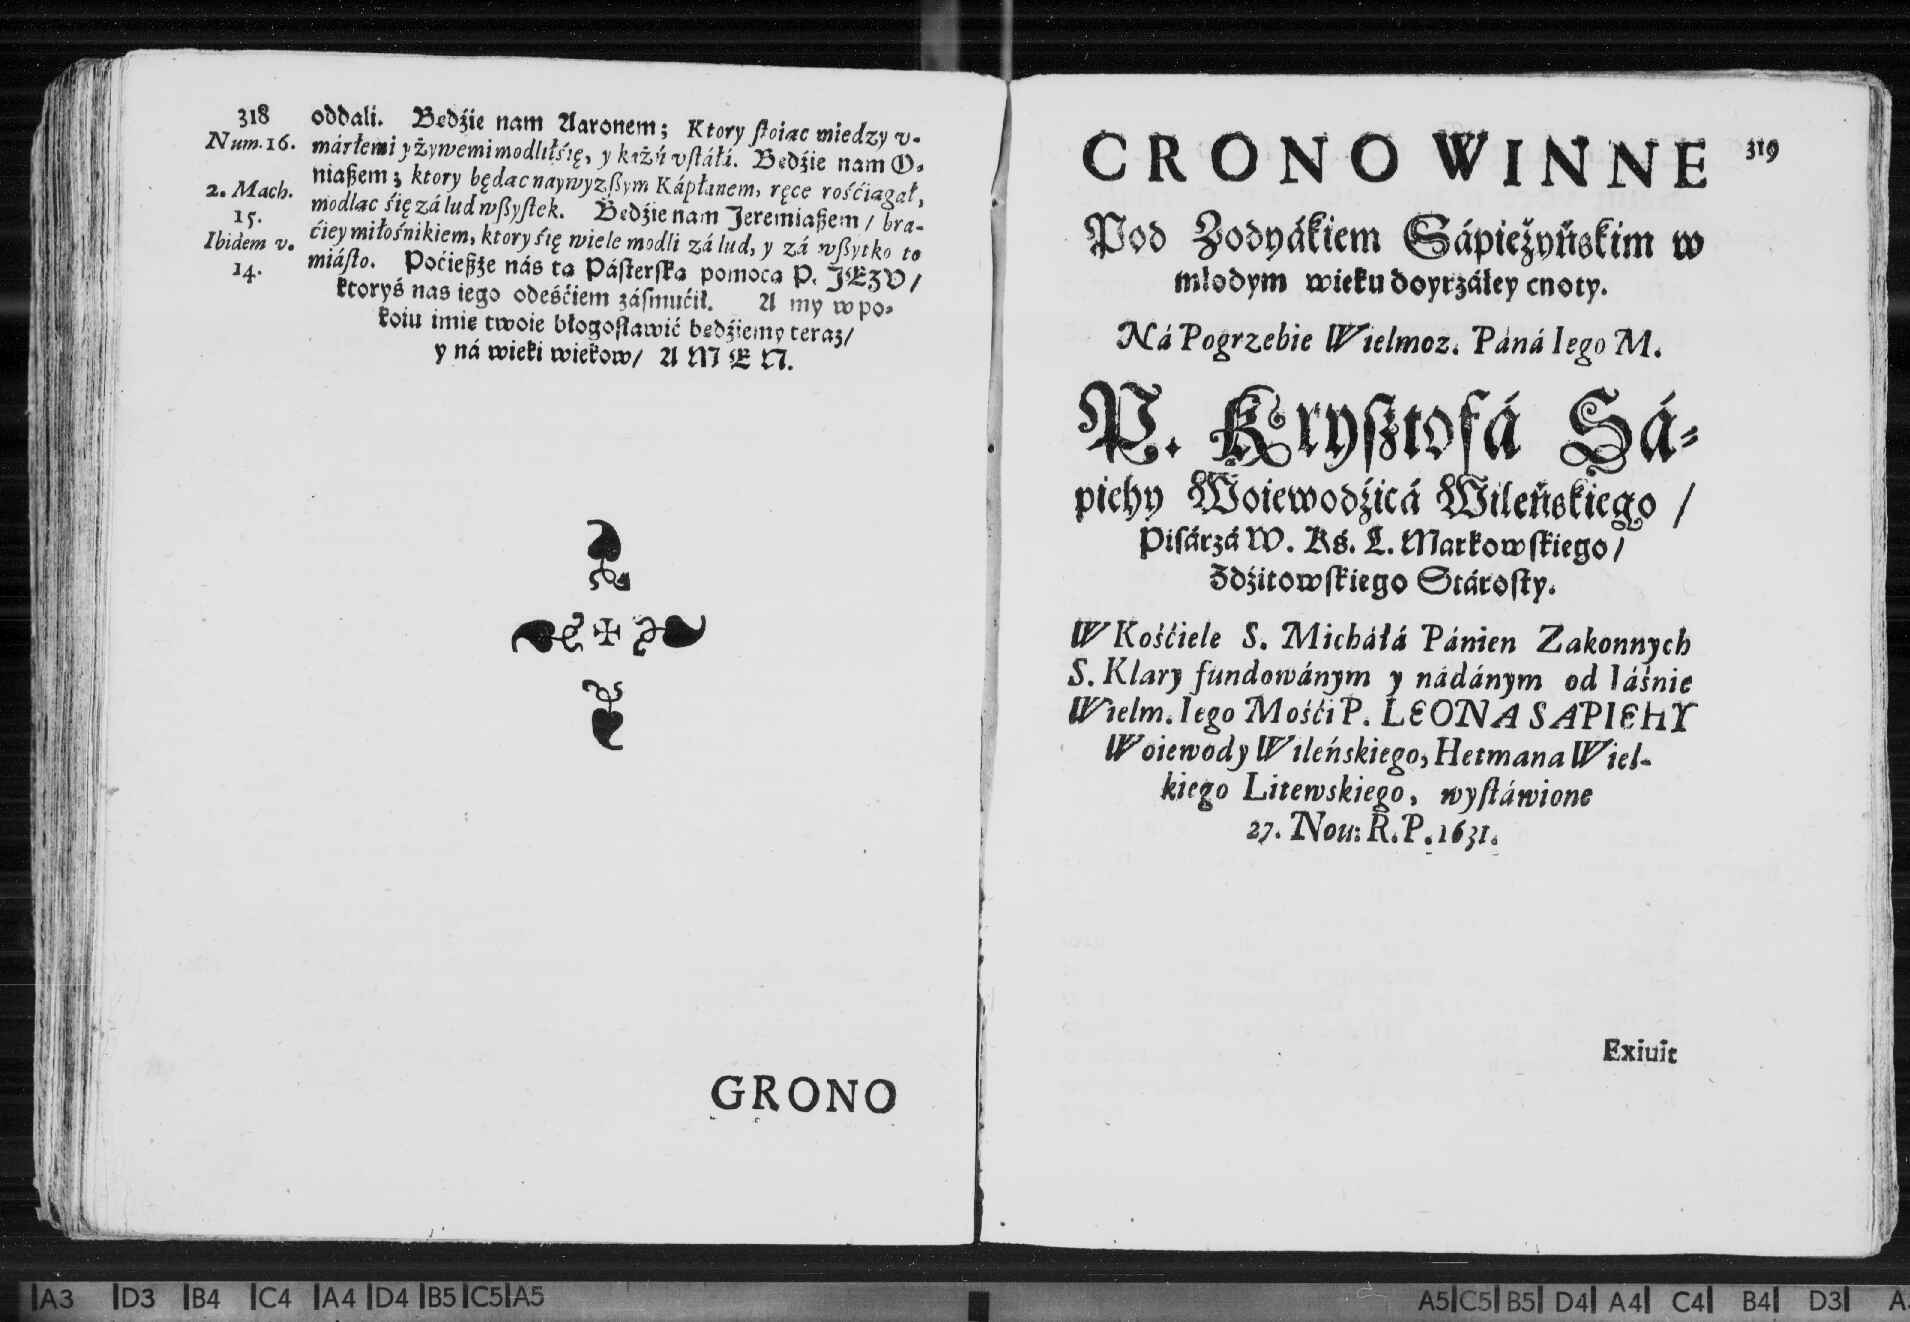 318
oddali. Będźie nam Aaronem; Ktory ſtoiac miedzy v-
Num. 16. márłemi y żywemi modlił śię, y káżń vſtáłi. Będźie nam O-
niaßem; ktory będac naywyzßym Kápłanem, ręce rośćiagał,
2. Mach. 15. modlac śię zá lud wßyſtek. Będźie nam Jeremiaßem / bra-
Ibidem v. 14. ćiey miłośnikiem, ktory śię wiele modli zá lud, y zá wßytko to
miáſto. Poćießże nás ta Páſterſka pomoca P. JEZV /
ktoryś nas iego odeśćiem záſmućił. A my w po-
koiu imie twoie błogoſławić będźiemy teraz /
y ná wieki wiekow / AMEN.
GRONO
319
CRONO WINNE
Pod Zodyákiem Sápieżyńskim w
młodym wieku doyrzáłey cnoty.
Ná Pogrzebie Wielmoz. Páná Iego M.
P. Kryſztofá Sá-
piehy Woiewodźicá Wileńskiego /
Piſárzá W. Kś. L. Markowſkiego /
Zdźitowſkiego Stároſty.
W Kośćiele S. Micháłá Pánien Zakonnych
S. Klary fundowánym y nádánym od Iáśnie
Wielm. Iego Mośći P. LEONA SAPIEHY
Woiewody Wileńskiego, Hetmana Wiel-
kiego Litewskiego, wyſtáwione
27. Nou: R. P. 1631.
Exiuit
A3 D3 B4 C4 A4 D4 B5 C5 A5
A5 C5 B5 D4 A4 C4 B4 D3